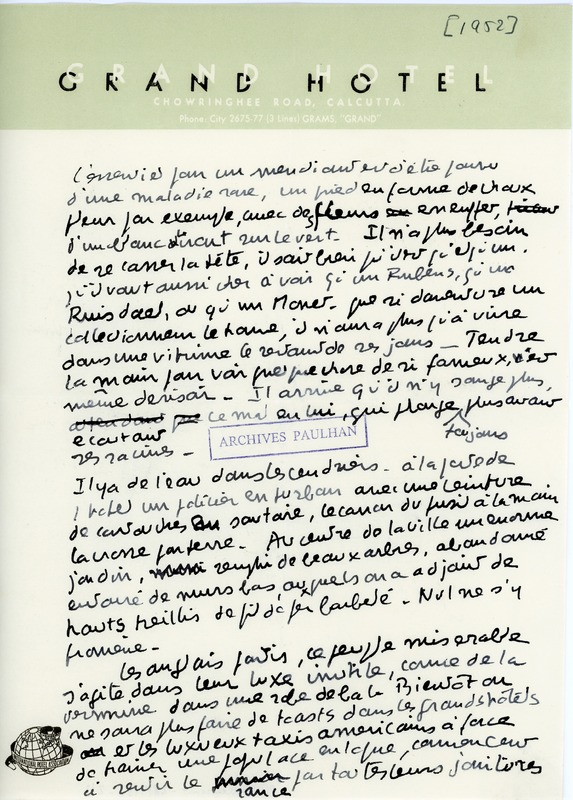 [1952]
GRAND HOTEL
GRAND HOTEL
CHOWRINGHEE ROAD, CALCUTTA
Phone: City 2675-77 (3 Lines) GRAMS, "GRAND"
L'essentiel pour un mendiant est d'être pourvu
d'une maladie rare, un pied en forme de choux
fleur par exemple, avec des fleurs en effet,
d'un blanc tirant sur le vert. Il n'a plus besoin
de se casser la tête, il sait bien
qu'il vaut aussi cher à voir qu'un Rubens, qu'un
Ruisdael, ou qu'un Monet. que si d'aventure un
collectionneur le trouve, il n'aura plus qu'à vivre
dans une vitrine le restant de ses jours — Tendre
la main pour voir quelque chose de si fameux, c'est
même dérisoire — Il arrive qu'il n'y songe plus,
écoutant ce mal en lui, qui plonge plus avant
toujours
ses racines —
ARCHIVES PAULHAN
Il y a de l'eau dans les cendriers — à la porte de
l'hotel un policier en turban avec une ceinture
de cartouches en sautoir, le canon du fusil à la main
la crosse par terre — Au centre de la ville un enorme
jardin, rempli de beaux arbres, abandonné
entouré de murs bas auxquels on a adjoint de
hauts treillis de fil de fer barbelé — Nul ne s'y
promène —
Les anglais partis, ce peuple miserable
s'agite dans leur luxe inutile, comme de la
vermine dans une robe de bal. Bientôt on
ne saura plus faire de toasts dans les grands hôtels
et les luxueux taxis américains à force
de trainer une populace en loque, commencent
à sentir le rance par toutes leurs jointures
INTERNATIONAL HOTEL ASSOCIATION